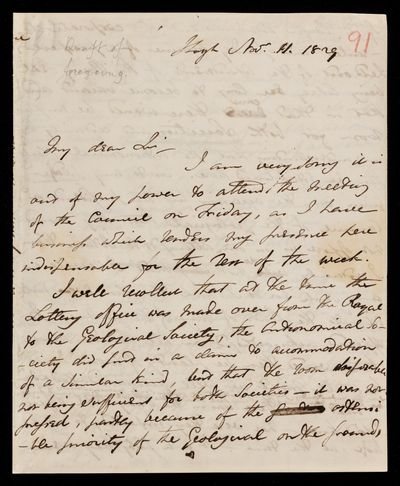 91
back of
foregoing.
Slough Nov. 11. 1829
My dear Sir,
I am very sorry it is
out of my power to attend the meeting
of the Council on Friday, as I have
business which renders my presence here
indispensable for the rest of the week.
I well recollect that at the time the
Lottery office was made over from the Royal
to the Geological Society, the Astronomical So-
-ciety did put in a claim to accommodation
of a similar kind but that the room disposable
not being sufficient for both Societies - it was not
pressed, partly because of the ostensi
-ble priority of the Geological on the grounds